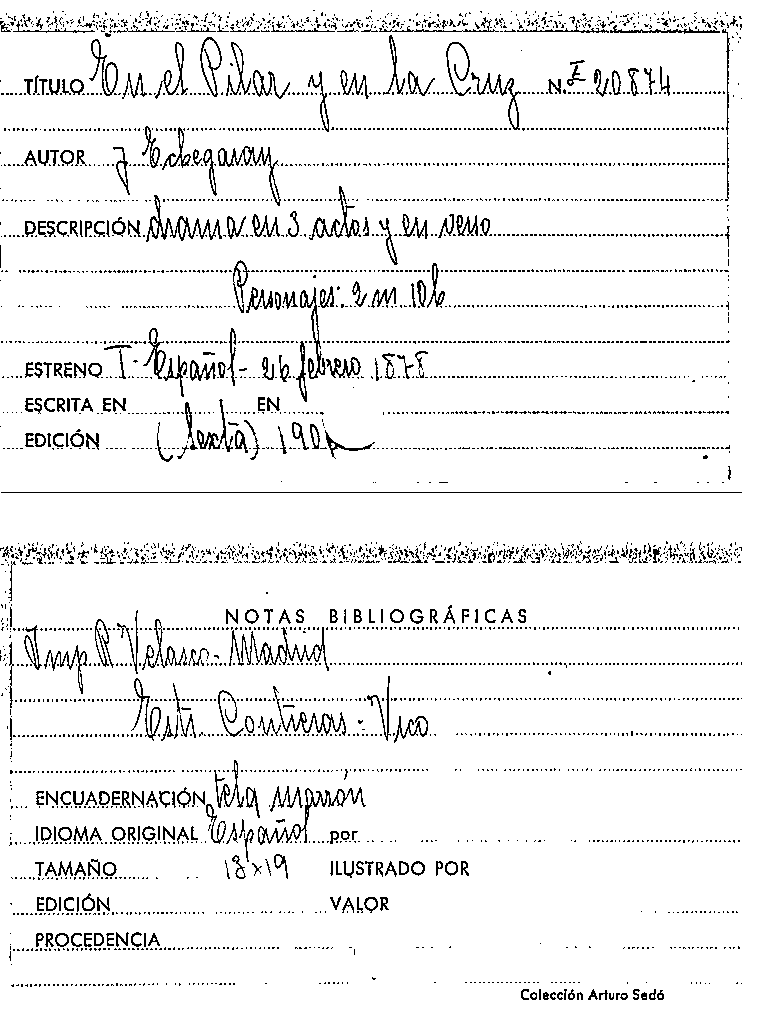 TÍTULO En el Pilar y en la Cruz N.º E 20874
AUTOR J Echegaray
DESCRIPCIÓN drama en 3 actos y en verso
Personajes: 2 m 10 h
ESTRENO T. Español - 26 febrero 1878
ESCRITA EN EN
EDICIÓN (Sexta)
NOTAS BIBLIOGRÁFICAS
Imp R Velasco - Madrid
Estr. Contreras - Vico
ENCUADERNACIÓN tela marrón
IDIOMA ORIGINAL Español por
TAMAÑO 13x19 ILUSTRADO POR
EDICIÓN VALOR
PROCEDENCIA
Colección Arturo Sedó